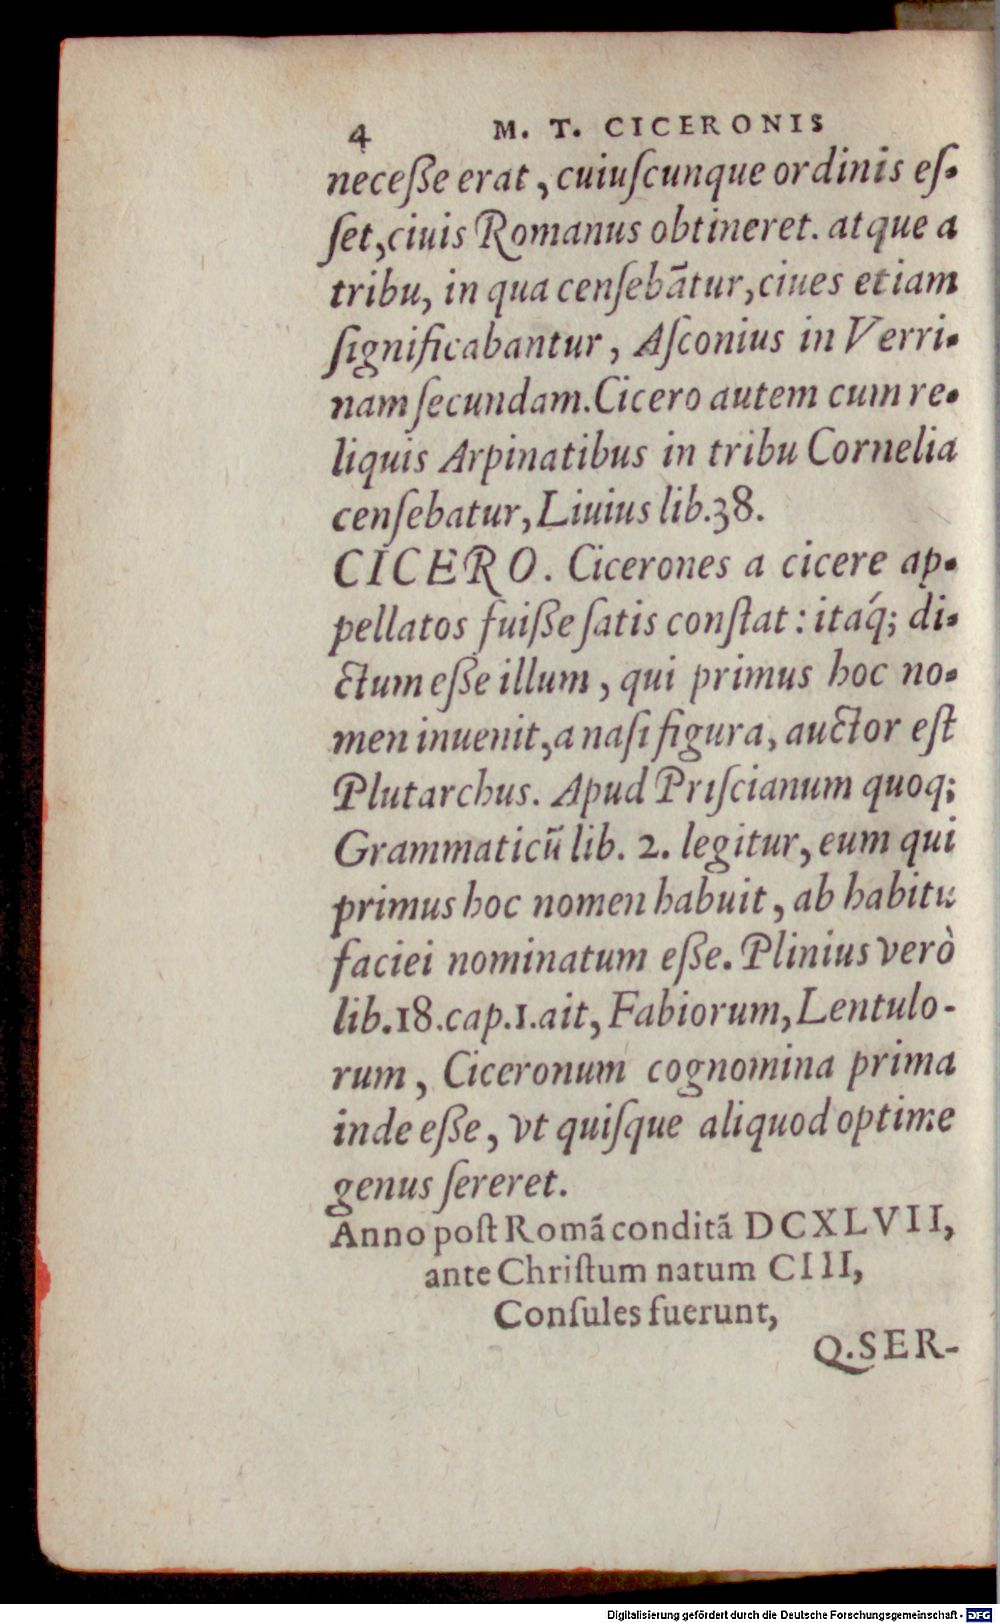 4 M. T. CICERONIS
neceſſe erat, cuiuſcunque ordinis eſ-
ſet, ciuis Romanus obtineret. atque a
tribu, in qua cenſebātur, ciues etiam
ſignificabantur, Aſconius in Verri-
nam ſecundam. Cicero autem cum re-
liquis Arpinatibus in tribu Cornelia
cenſebatur, Liuius lib. 38.
CICERO. Cicerones a cicere ap-
pellatos fuiſſe ſatis conſtat: itaq́; di-
ctum eſſe illum, qui primus hoc no-
men inuenit, a naſi figura, auctor eſt
Plutarchus. Apud Priſcianum quoq;
Grammaticū lib. 2. legitur, eum qui
primus hoc nomen habuit, ab habitu
faciei nominatum eſſe. Plinius verò
lib. 18. cap. 1. ait, Fabiorum, Lentulo-
rum, Ciceronum cognomina prima
inde eſſe, vt quiſque aliquod optime
genus ſereret.
Anno poſt Romā conditā DCXLVII,
ante Chriſtum natum CIII,
Conſules fuerunt,
Q. SER-
Digitalisierung gefördert durch die Deutsche Forschungsgemeinschaft - DFG